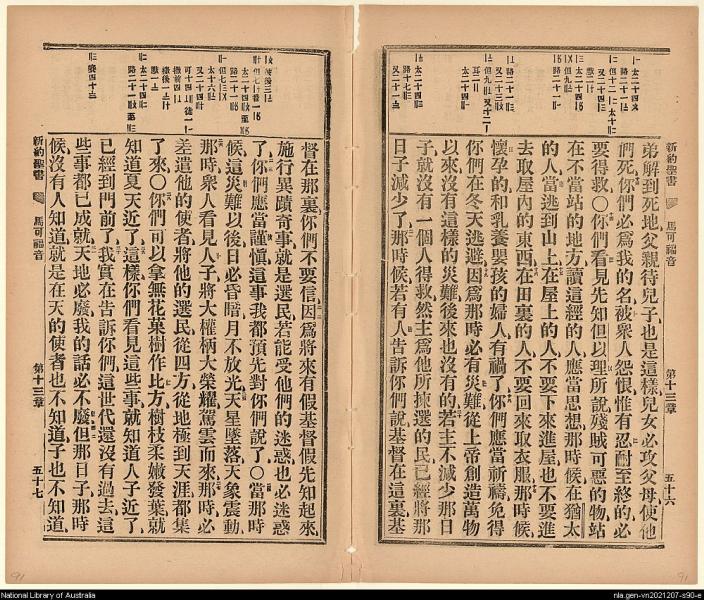 新約聖書
馬可福音
第十三章
五十六
弟解到死地父親待兒子也是這樣兒女必攻父母使他
們死你們必爲我的名被衆人怨恨惟有忍耐至終的必
要得救〇你們看見先知但以理所說殘賊可惡的物站
在不當站的地方讀這經的人應當思想那時候在猶太
的人當逃到山上在屋上的人不要下來進屋也不要進
去取屋內的東西在田裏的人不要回來取衣服那時候
懷孕的和乳養嬰孩的婦人有禍了你們應當祈禱免得
你們在冬天逃避因爲那時必有災難從上帝創造萬物
以來沒有這樣的災難後來也沒有的若主不減少那日
子就沒有一個人得救然主爲他所揀選的民已經將那
日子減少了那時候若有人告訴你們說基督在這裏基
督在那裏你們不要信因爲將來有假基督假先知起來
施行異蹟奇事就是選民若能受他們的迷惑也必迷惑
了你們應當謹愼這事我都預先對你們說了〇當那時
候這災難以後日必昏暗月不放光天星墜落天象震動
那時衆人看見人子將大權柄大榮耀駕雲而來那時必
差遣他的使者將他的選民從四方從地極到天涯都集
了來〇你們可以拿無花菓樹作比方樹枝柔嫩發葉就
知道夏天近了這樣你們看見這些事就知道人子近了
已經到門前了我實在告訴你們這世代還沒有過去這
些事都已成就天地必廢我的話必不廢但那日子那時
候沒有人知道就是在天的使者也不知道子也不知道
新約聖書
馬可福音
第十三章
五十七
91
91
National Library of Australia
nla.gen-vn2021207-s90-e